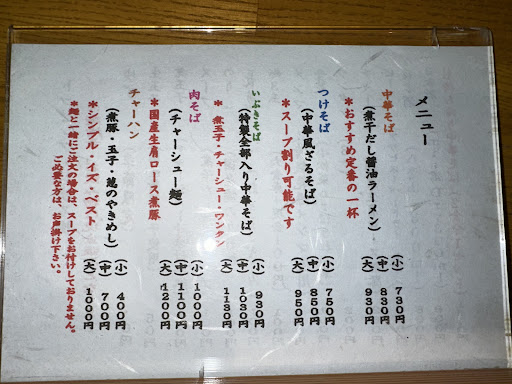 メニュー
中華そば
(煮干だし醤油ラーメン)
＊おすすめ定番の一杯
(小) 730円
(中) 830円
(大) 930円
つけそば
(中華風ざるそば)
＊スープ割り可能です
(小) 750円
(中) 850円
(大) 950円
いぶきそば
(特製全部入り中華そば)
＊煮玉子・チャーシュー・ワンタン
(小) 930円
(中) 1030円
(大) 1130円
肉そば
(チャーシュー麺)
＊国産生肩ロース煮豚
(小) 1000円
(中) 1100円
(大) 1200円
チャーハン
(煮豚・玉子・葱のやきめし)
＊シンプル・イズ・ベスト
(小) 400円
(中) 700円
(大) 1000円
＊麺と一緒にご注文の場合は、スープをお付けしておりません。
ご必要な方は、お声掛け下さい。